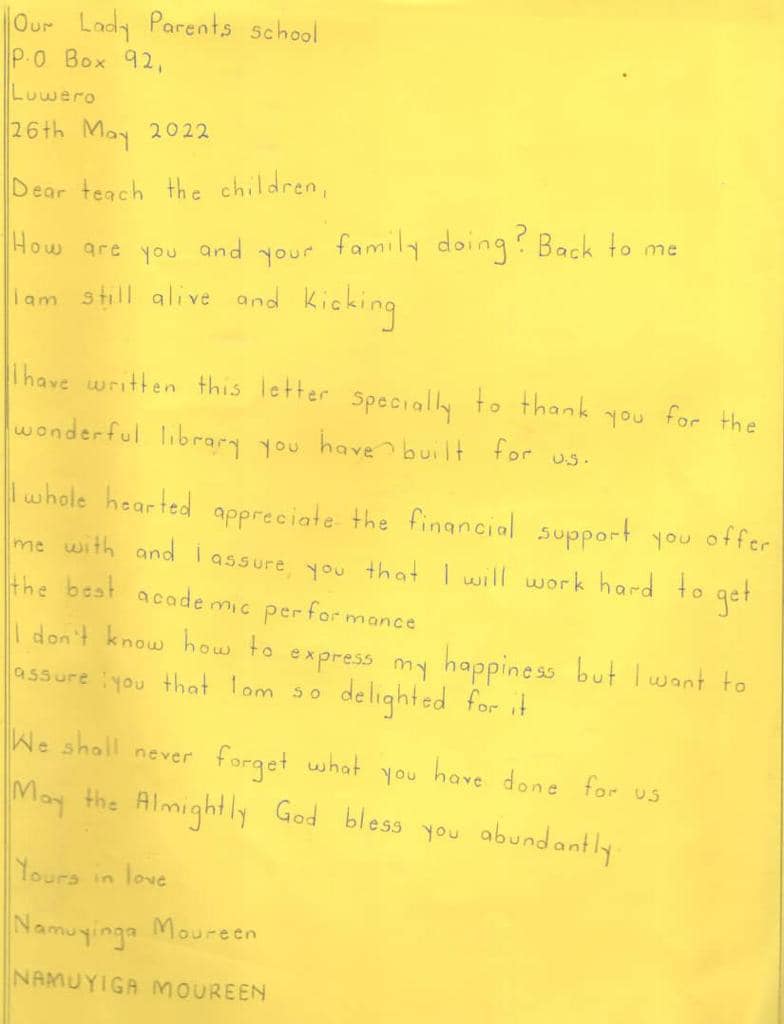 Our Lady Parents school
P.O Box 92,
Luwero
26th May 2022
Dear teach the children,
How are you and your family doing? Back to me
Iam still alive and kicking
I have written this letter specially to thank you for the
wonderful library you have built for us.
I whole hearted appreciate the financial support you offer
me with and i assure you that I will work hard to get
the best academic performance
I don't know how to express my happiness but I want to
assure you that Iam so delighted for it
We shall never forget what you have done for us
May the Almightly God bless you abundantly
Yours in love
Namuyinga Moureen
NAMUYIGA MOUREEN